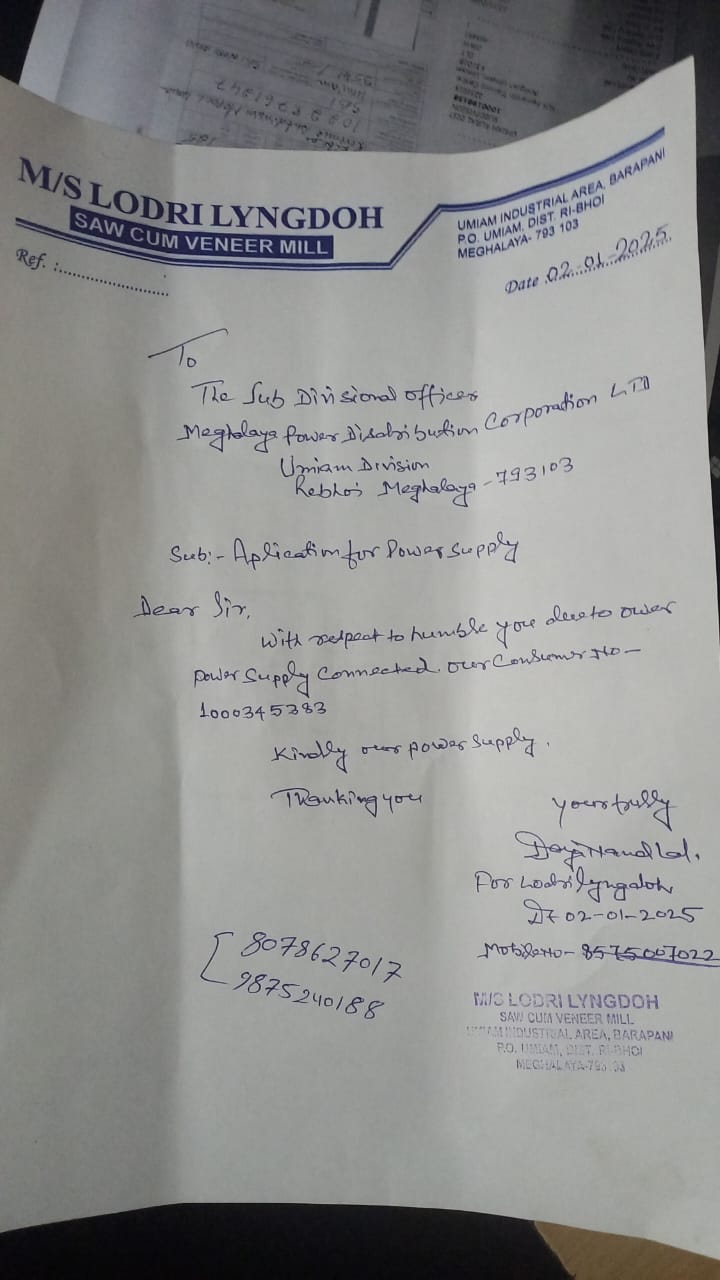 M/S LODRI LYNGDOH
SAW CUM VENEER MILL
UMIAM INDUSTRIAL AREA, BARAPANI
P.O. UMIAM, DIST. RI-BHOI
MEGHALAYA- 793 103
Ref. :
Date 02-01-2025
To
The Sub Divisional officer
Meghalaya Power Disdribution Corporation LTD
Umiam Division
Rebhoi Meghalaya - 793103
Sub:- Aplication for Power supply
Dear Sir,
With respeat to humble you dueto ower
power supply Connected. our Consumer No-
1000345383
Kindly our power supply.
Thanking you
yours fully
For Lodri lyngdoh
DT 02-01-2025
Mobile No- 8575007022
8078627017
9875240188
M/S LODRI LYNGDOH
SAW CUM VENEER MILL
UMIAM INDUSTRIAL AREA, BARAPANI
P.O. UMIAM, DIST. RI-BHOI
MEGHALAYA-793 103